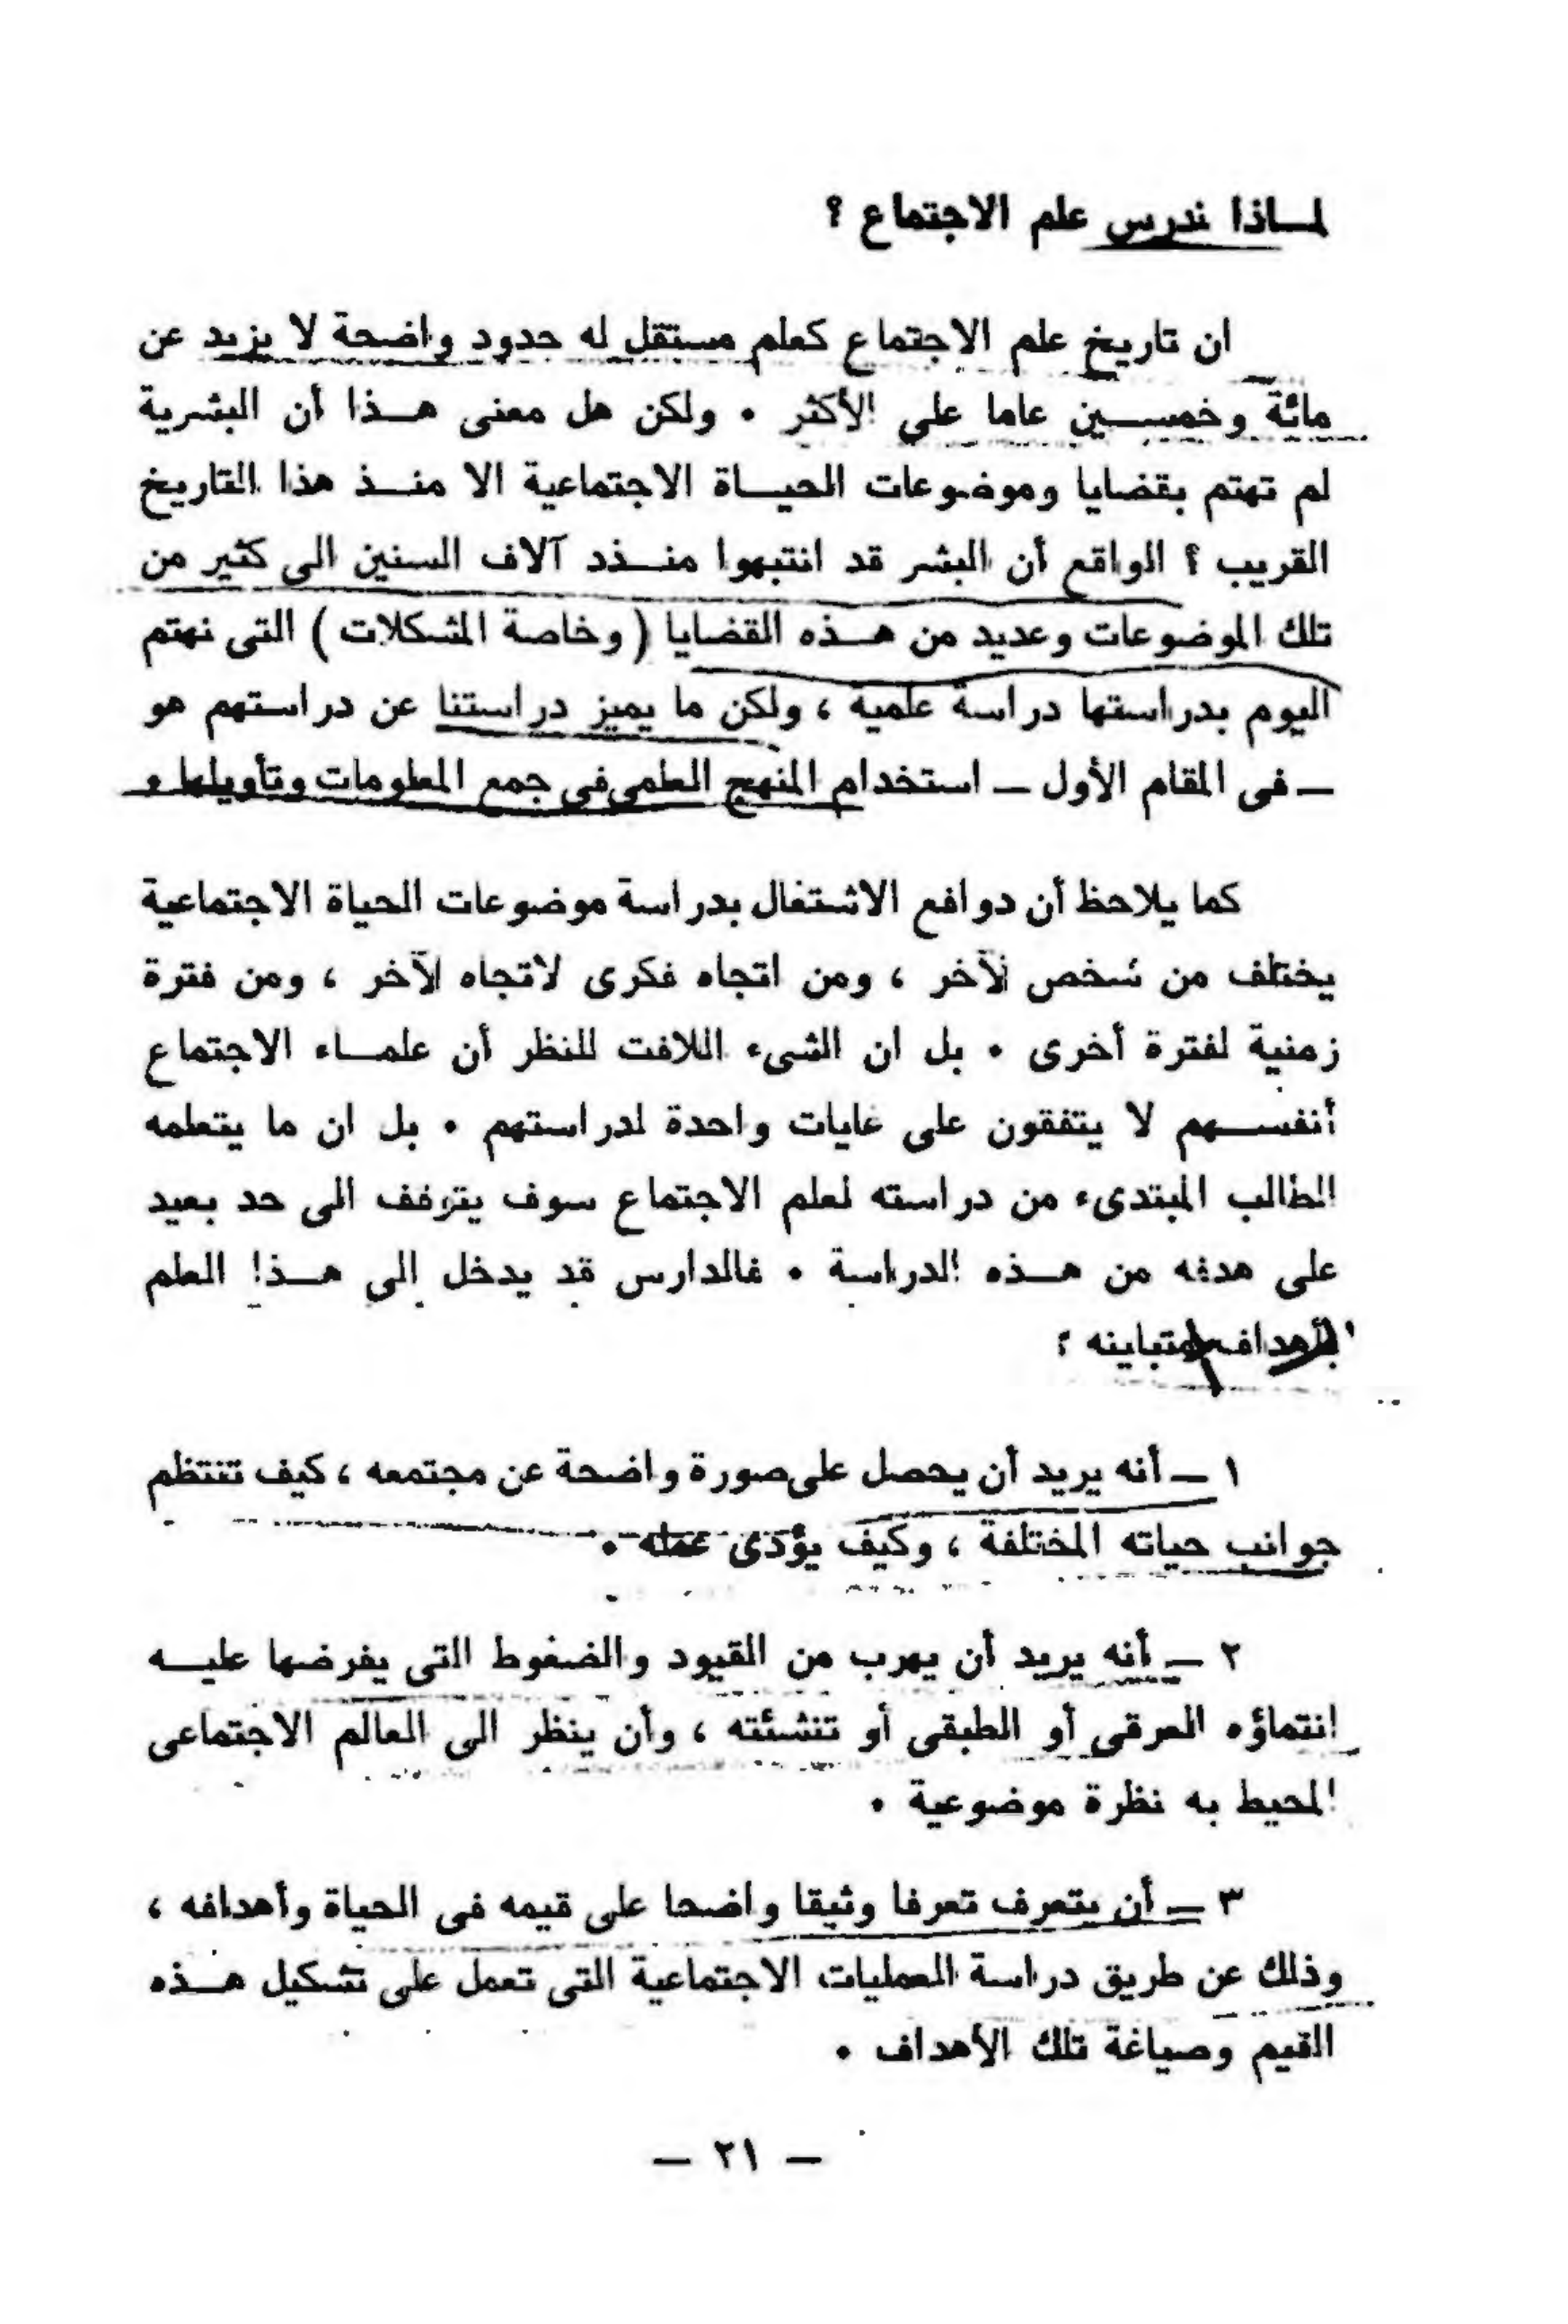 لمـاذا ندرس علم الاجتماع ؟
ان تاريخ علم الاجتماع كعلم مستقل له حدود واضحة لا يزيد عن
مائة وخمسـين عاما على الأكثر ٠ ولكن هل معنى هـذا أن البشرية
لم تهتم بقضايا وموضوعات الحيـاة الاجتماعية الا منـذ هذا التاريخ
القريب ؟ الواقع أن البشر قد انتبهوا منـذد آلاف السنين الى كثير من
تلك الموضوعات وعديد من هـذه القضايا ( وخاصة المشكلات ) التى نهتم
اليوم بدراستها دراسة علمية ، ولكن ما يميز دراستنا عن دراستهم هو
ـ فى المقام الأول ـ استخدام المنهج العلمى فى جمع المعلومات وتأويلها و
كما يلاحظ أن دوافع الاشتغال بدراسة موضوعات الحياة الاجتماعية
يختلف من شخص لآخر ، ومن اتجاه فكرى لاتجاه لآخر ، ومن فترة
زمنية لفترة أخرى ٠ بل ان الشىء اللافت للنظر أن علمـاء الاجتماع
أنفسـهم لا يتفقون على غايات واحدة لدراستهم ٠ بل ان ما يتعلمه
الطالب المبتدىء من دراسته لعلم الاجتماع سوف يتوقف الى حد بعيد
على هدفه من هـذه الدراسة ٠ فالدارس قد يدخل الى هـذا العلم
بأهداف متباينه :
١ ـ أنه يريد أن يحصل على صورة واضحة عن مجتمعه ، كيف تنتظم
جوانب حياته المختلفة ، وكيف يؤدى عمله ٠
٢ ـ أنه يريد أن يهرب من القيود والضغوط التى يفرضها عليـه
انتماؤه العرقى أو الطبقى أو تنشئته ، وأن ينظر الى العالم الاجتماعى
المحيط به نظرة موضوعية ٠
٣ ـ أن يتعرف تعرفا وثيقا واضحا على قيمه فى الحياة وأهدافه ،
وذلك عن طريق دراسة العمليات الاجتماعية التى تعمل على تشكيل هـذه
القيم وصياغة تلك الأهداف ٠
ـ ٢١ ـ